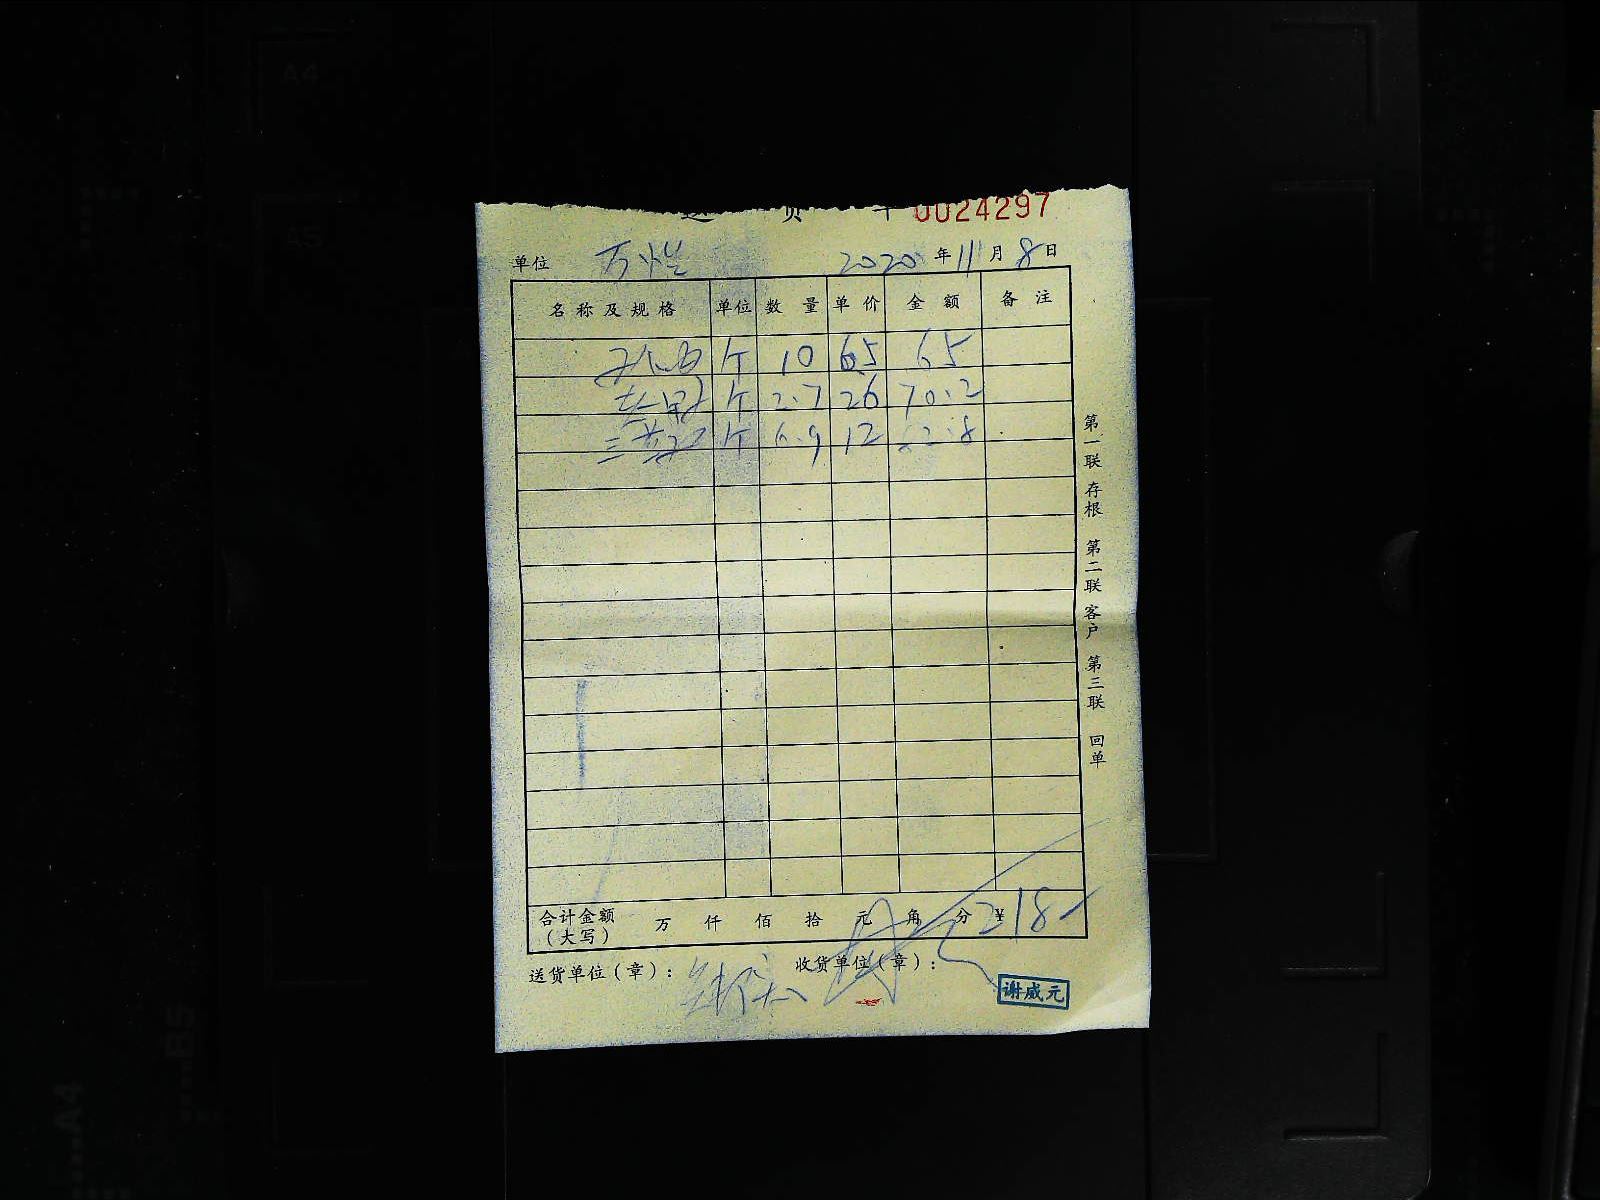 货 0024297
单位 万 2020年11月8日
名称及规格 单位 数量 单价 金额 备注
个 10 6.5 65
个 2.7 26 70.2
个 6.9 12 82.8
合计金额 万 仟 佰 拾 元 角 分 ¥218
（大写）
送货单位（章）： 收货单位（章）：
谢威元
第一联 存根 第二联 客户 第三联 回单
A4
A5
B5
A4